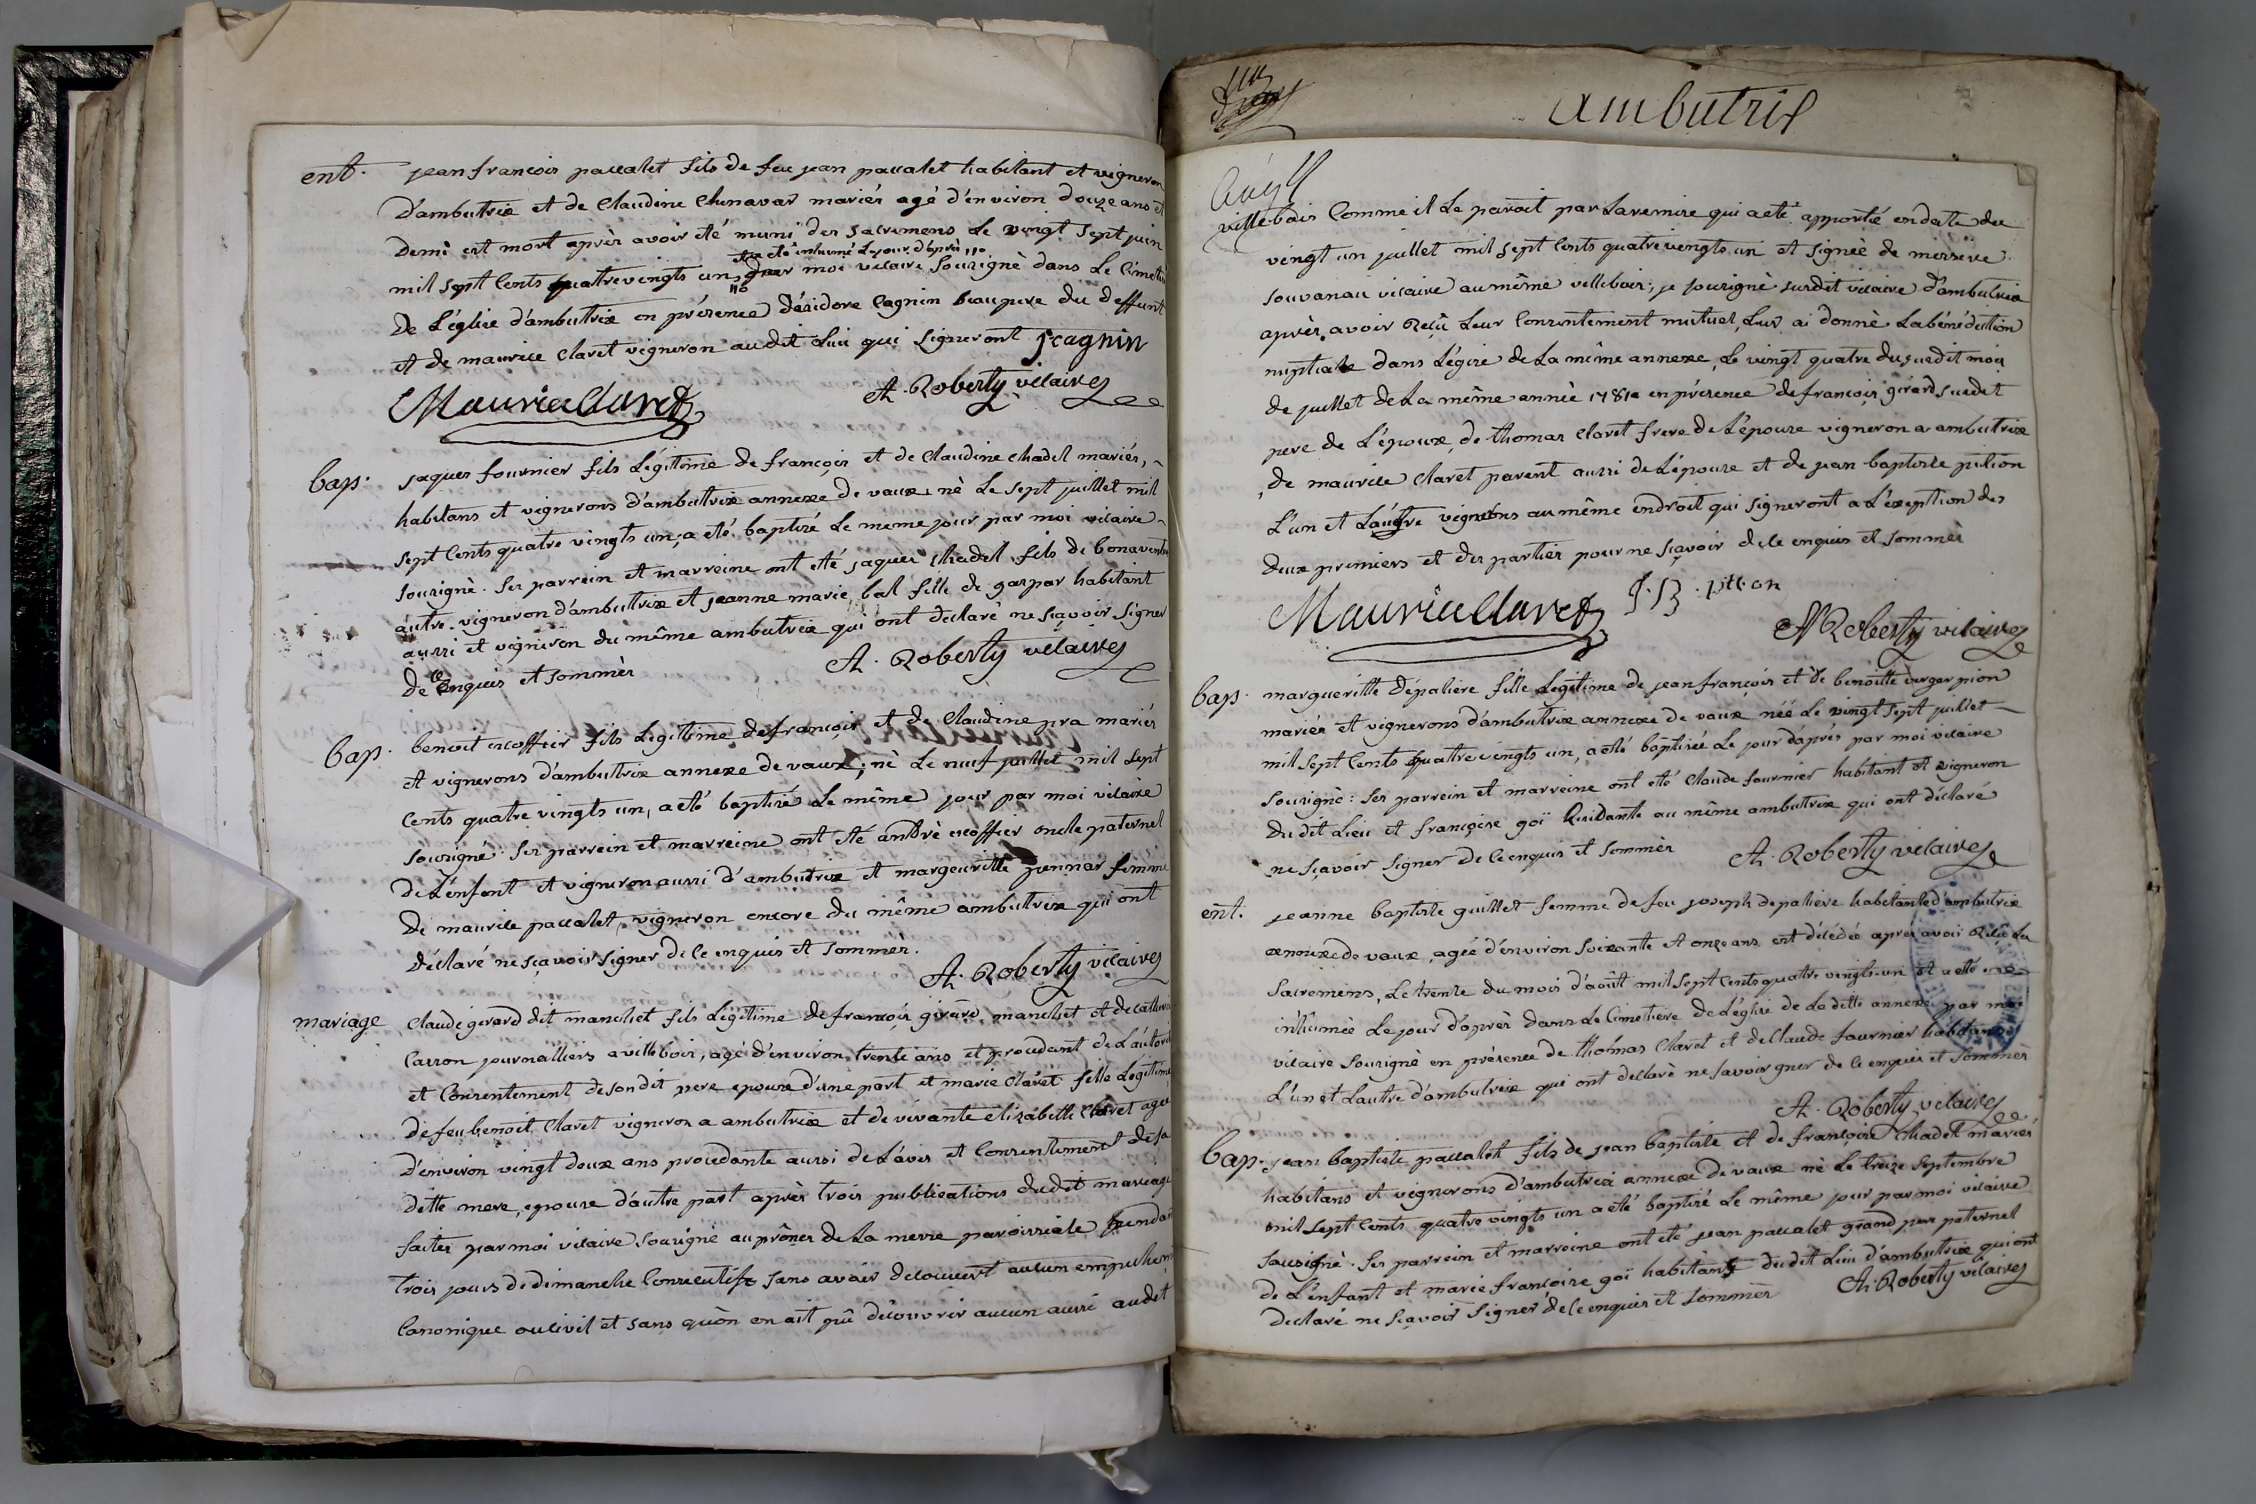 ent. jean françois paccalet fils de feu jean paccalet habitant et vigneron
d'ambutrix et de Claudine Chenavas mariés agé d'environ douze ans et
demi est mort après avoir été muni des sacremens le vingt sept juin
a été inhumé le jour d'après
mil sept cents quatrevingts un, par moi vicaire sousigné dans le Cimetiere
de l'églie d'ambutrix en présence d'ésidore cagnin beaupere du deffunt
et de maurice claret vigneron audit lieu qui signeront J cagnin
Maurice Claret A. Roberty vicaire
bap. jaques fournier fils légitime de françois et de Claudine chadel mariés,
habitans et vignerons d'ambutrix annexe de vaux, né le sept juillet mil
sept cents quatre vingts un, a eté baptisé le meme jour par moi vicaire
sousigné. ses parrein et marreine ont eté jaques chadel fils de bonaventure
autre vigneron d'ambutrix et jeanne marie bal fille de gaspar habitant
aussi et vigneron du même ambutrix qui ont declaré ne sçavoir signer
de ce enquis et sommés A. Roberty vicaire
bap. benoit escoffier fils legitime de françois et de Claudine pra mariés
et vignerons d'ambutrix annexe de vaux, né le neuf juillet mil sept
cents quatre vingts un, a eté baptisé le même jour par moi vicaire
sousigné. ses parrein et marreine ont eté andré escoffier oncle paternel
de l'enfant et vigneron aussi d'ambutrix et margeuritte femme
de maurice paccalet, vigneron encore du même ambutrix qui ont
déclaré ne sçavoir signer de ce enquis et sommés.
A. Roberty vicaire
mariage Claude girard dit manchet fils légitime de françois girard manchet et de catherine
Carron journalliers a villebois, agé d'environ trente ans et procedant de l'autorité
et consentement de son dit pere epoux d'une part et marie claret fille légitime
de feu benoit claret vigneron a ambutrix et de vivante elizabeth claret agée
d'environ vingt deux ans procedante aussi de l'avis et consentement de sa
dette mere, epouse d'autre part après trois publications dudit mariage
faites par moi vicaire sousigné au prônes de la messe paroissiale pendant
trois jours de dimanche consecutifs sans avoir decouvert aucun empechement
canonique ou civil et sans qu'on en ait pû découvrir aucun aussi audit
ambutrix
villebois comme il le paroit par la remise qui a eté apportée en date du
vingt un juillet mil sept cents quatrevingts un et signée de messire
souvanau vicaire au même villebois; je sousigné susdit vicaire d'ambutrix
après avoir reçû leur consentement mutuel, leur ai donné la bénédiction
nuptiale dans l'égise de la même annexe, le vingt quatre du susdit mois
de juillet de la même année 1781 en présence de françois girard susdit
pere de l'époux, de thomas claret frere de l'epouse vigneron a ambutrix
de maurice claret parent aussi de l'épouse et de jean baptiste pition
l'un et l'autre vignerons au même endroit qui signeront a l'exeption des
deux premiers et des parties pour ne sçavoir de ce enquis et sommés
Maurice Claret J. B. pition
A Roberty vicaire
bap. margueritte depaliere fille légitime de jean françois et de benoitte
mariés et vignerons d'ambutrix annexe de vaux née le vingt sept juillet
mil sept cents quatre vingts un, a eté baptisée le jour d'après par moi vicaire
sousigné: ses parrein et marreine ont eté Claude fournier habitant et vigneron
du dit lieu et françoise goï residante au même ambutrix qui ont déclaré
ne sçavoir signer de ce enquis et sommés A. Roberty vicaire
ent. jeanne baptiste guillet femme de feu joseph depaliere habitante d'ambutrix
annexe de vaux, agée d'environ soixante et onze ans est décédée après avoir reçû les
sacremens, le trente du mois d'août mil sept cents quatre vingts-un et a eté
inhumée le jour d'après dans le cimetiere de l'églie de la ditte annexe par moi
vicaire sousigné en présence de thomas claret et de Claude fournier habitans
l'un et l'autre d'ambutrix qui ont declaré ne savoir gner de ce enquis et sommés
A. Roberty vicaire
bap. jean baptiste paccalet fils de jean baptiste et de françoise chadel mariés
habitans et vignerons d'ambutrix annexe de vaux né le treize septembre
mil sept cents quatre vingts un a eté baptisé le même jour par moi vicaire
sousigné. ses parrein et marreine ont eté jean paccalet grand pere paternel
de l'enfant et marie françoise goï habitans du dit lieu d'ambutrix qui ont
declaré ne sçavoir signer de ce enquis et sommés A. Roberty vicaire